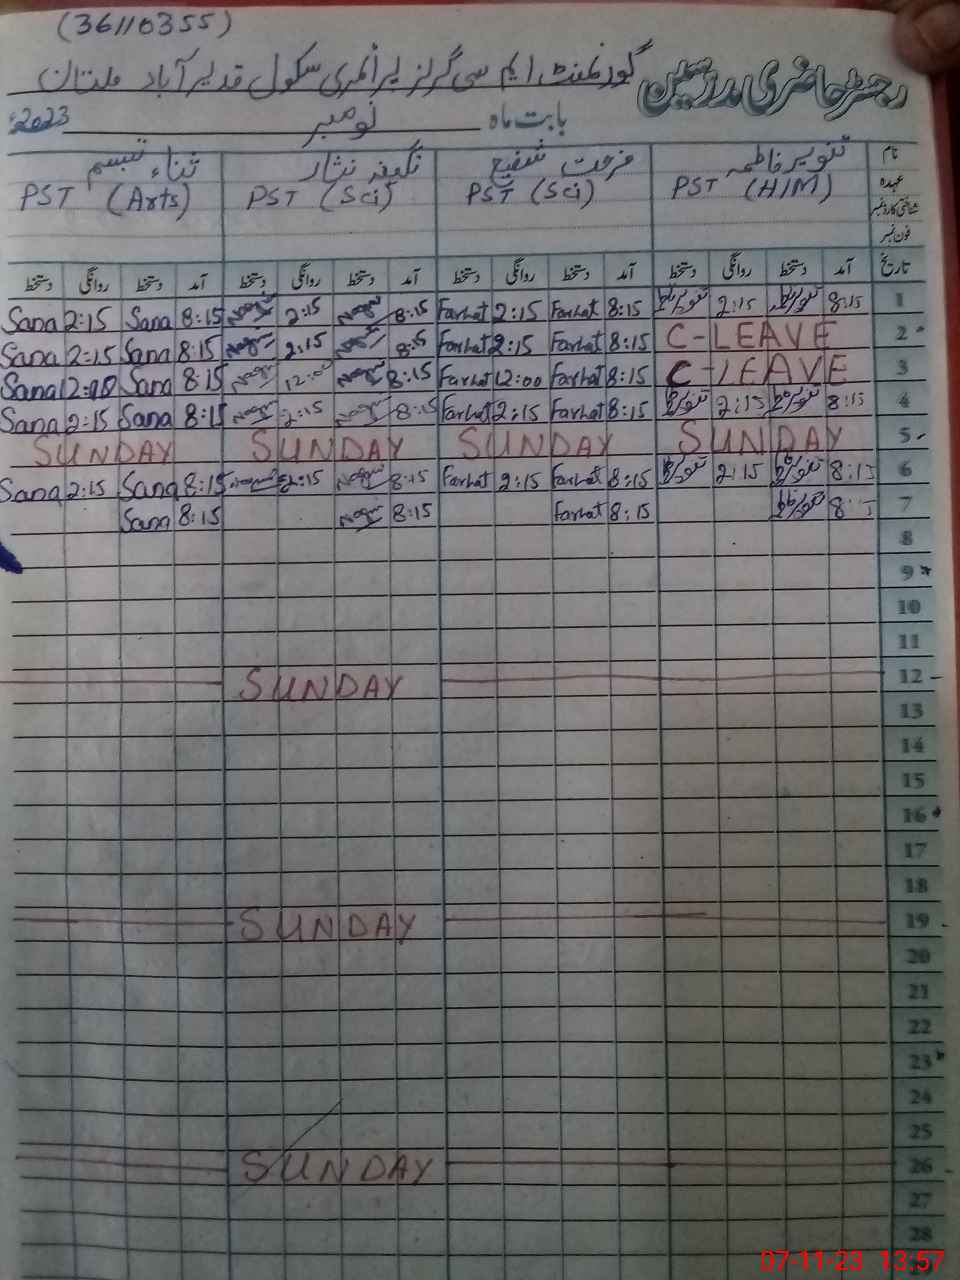 (36110355)
رجسٹر حاضری مدرسین گورنمنٹ ایم سی گرلز پرائمری سکول قدیر آباد ملتان
بابت ماہ نومبر 2023ء
نام تنویر فاطمہ فرحت شفیع نگینہ نثار ثناء تبسم
عہدہ PST (H/M) PST (Sci) PST (Sci) PST (Arts)
شناختی کارڈ نمبر
فون نمبر
تاریخ آمد دستخط روانگی دستخط آمد دستخط روانگی دستخط آمد دستخط روانگی دستخط آمد دستخط روانگی دستخط
Sana 2:15 Sana 8:15 2:15 8:15 Farhat 2:15 Farhat 8:15 2:15 8:15 1
Sana 2:15 Sana 8:15 2:15 Farhat 2:15 Farhat 8:15 C-LEAVE 2
Sana 12:00 Sana 8:15 12:00 8:15 Farhat 12:00 Farhat 8:15 C-LEAVE 3
Sana 2:15 Sana 8:15 2:15 8:15 Farhat 2:15 Farhat 8:15 2:15 8:15 4
SUNDAY SUNDAY SUNDAY SUNDAY 5
Sana 2:15 Sana 8:15 2:15 8:15 Farhat 2:15 Farhat 8:15 2:15 8:15 6
Sana 8:15 8:15 Farhat 8:15 8:15 7
8
9
10
11
SUNDAY 12
13
14
15
16
17
18
SUNDAY 19
20
21
22
23
24
25
SUNDAY 26
27
28
07-11-23 13:57